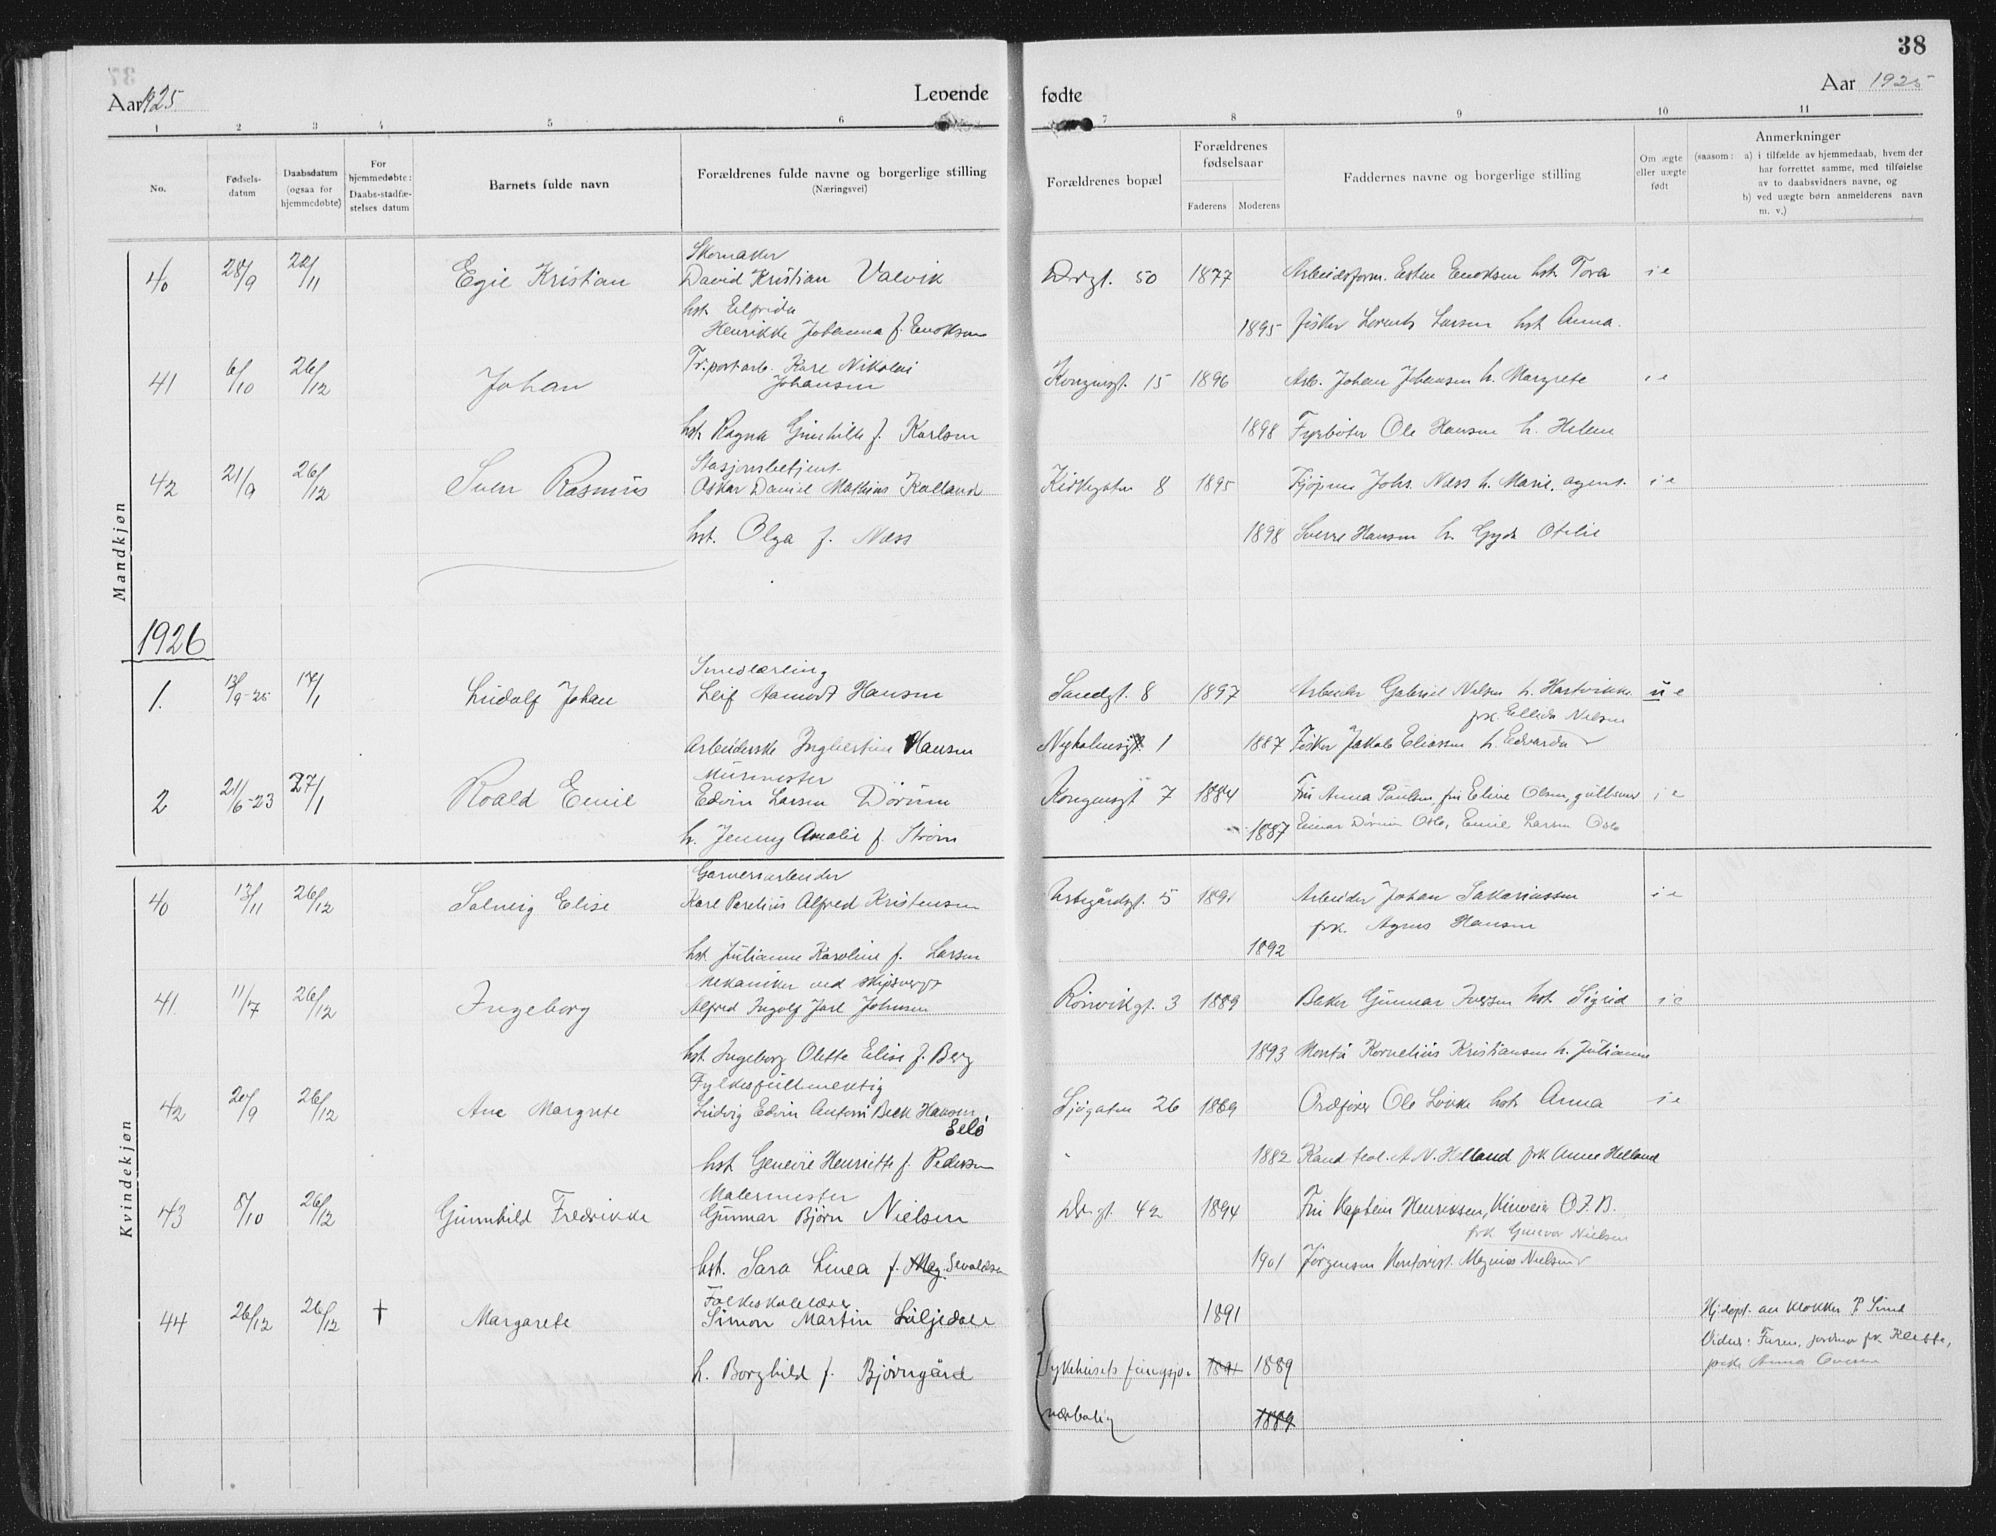 38
Aar 1925
Levende
fødte
Aar 1925
1 2 3 4 5 6 7 8 9 10 11
No.
Fødsels-
datum
Daabsdatum
(ogsaa for
hjemmedøbte)
For
hjemmedøbte:
Daabs-stadfæ-
stelses datum
Barnets fulde navn
Forældrenes fulde navne og borgerlige stilling
(Næringsvei)
Forældrenes bopæl
Forældrenes
fødselsaar
Faderens
Moderens
Faddernes navne og borgerlige stilling
Om ægte
eller uægte
født
Anmerkninger
(saasom: a) i tilfælde av hjemmedaab, hvem der
har forrettet samme, med tilføielse
av to daabsvidners navne, og
b) ved uægte børn anmelderens navn
m. v.)
Mandkjøn
Skomaker
40 28/9 22/11 Egil Kristian David Kristian Valvik Drgt. 50 1877 Arbeidsform. Esten Enoksen hst. Tora i e
hst. Elfrida
Henrikke Johanna f. Enoksen 1895 Fisker Lorentz Larsen hst. Anna.
Tr.portarb. Karl Nikolai
41 6/10 26/12 Johan Johansen Kongensgt. 15 1896 Arb. Johan Johansen h. Margrete i e
hst. Ragna Gunhilde f. Karlsen 1898 Fyrbøter Ole Hansen h. Helene
Stasjonsbetjent
42 21/9 26/12 Sverr Rasmus Oskar Daniel Mathias Kolland Kirkegaten 8 1895 Kjøpm. Johs. Næss h. Marie, agent. i e
hst. Olga f. Næss 1898 Sverre Hansen h. Gyda Otilie
1926
Smedlærling
1. 13/9-25 17/1 Ludolf Johan Leif Aamodt Hansen Sandgt. 8 1897 Arbeider Gabriel Nilsen h. Hartvikke u e
frk. Ellida Nilsen
Arbeiderske Ingbertine Hansen Nyholmsgt 1 1887 Fisker Jakob Eliassen h. Edvarda
Murmester
2 21/6-23 27/1 Roald Emil Edvin Larsen Dørum Kongensgt 7 1884 Fru Anna Paulsen, fru Eline Olsen, gullsmed i e
h. Jenny Amalie f. Strøm 1887 Einar Dørum Oslo, Emil Larsen Oslo
Kvindekjøn
Garverarbeider
40 13/11 26/12 Solveig Elise Karl Parelius Alfred Kristensen 5 1891 Arbeider Johan Sakariassen i e
frk. Agnes Hansen
hst. Julianne Karoline f. Larsen 1892
Mekaniker ved skipsverft
41 11/7 26/12 Ingeborg Alfred Ingolf Jarl Johnsen Rønvikgt. 3 1889 Baker Gunnar Iversen hst. Sigrid i e
hst. Ingeborg Olette Elise f. Berg 1893 Montør Kornelius Kristiansen h. Julianne
Fylkesfullmektig
42 20/9 26/12 Ane Margrete Ludvig Edvin Antoni Bech Hansen Sjøgaten 26 1889 Ordfører Ole Løkke hst. Anna i e
Selø
hst. Henriette f. Pedersen 1882 Kand. teol. A. N. Helland frk. Anne Helland
Malermester
43 8/10 26/12 Gunnhild Fredrikke Gunnar Bjørn Nielsen Drgt. 42 1894 Fru Kaptein Henriksen, O.F.B.
frk. Gunvor Nielsen
hst. Sara Linea f. Mag. Sevaldsen 1901 Jørgensen Kontorist Magnus Nielsen
Folkeskolelærer
44 26/12 26/12 † Margarete Simon Martin Liljedale 1891 Hj.døpt. av klokker P. Sund
Vidner: Faren, jordmor frk. Klette,
h. Borghild f. Bjørngård Sykehusets 1891 1889 Anna
1889